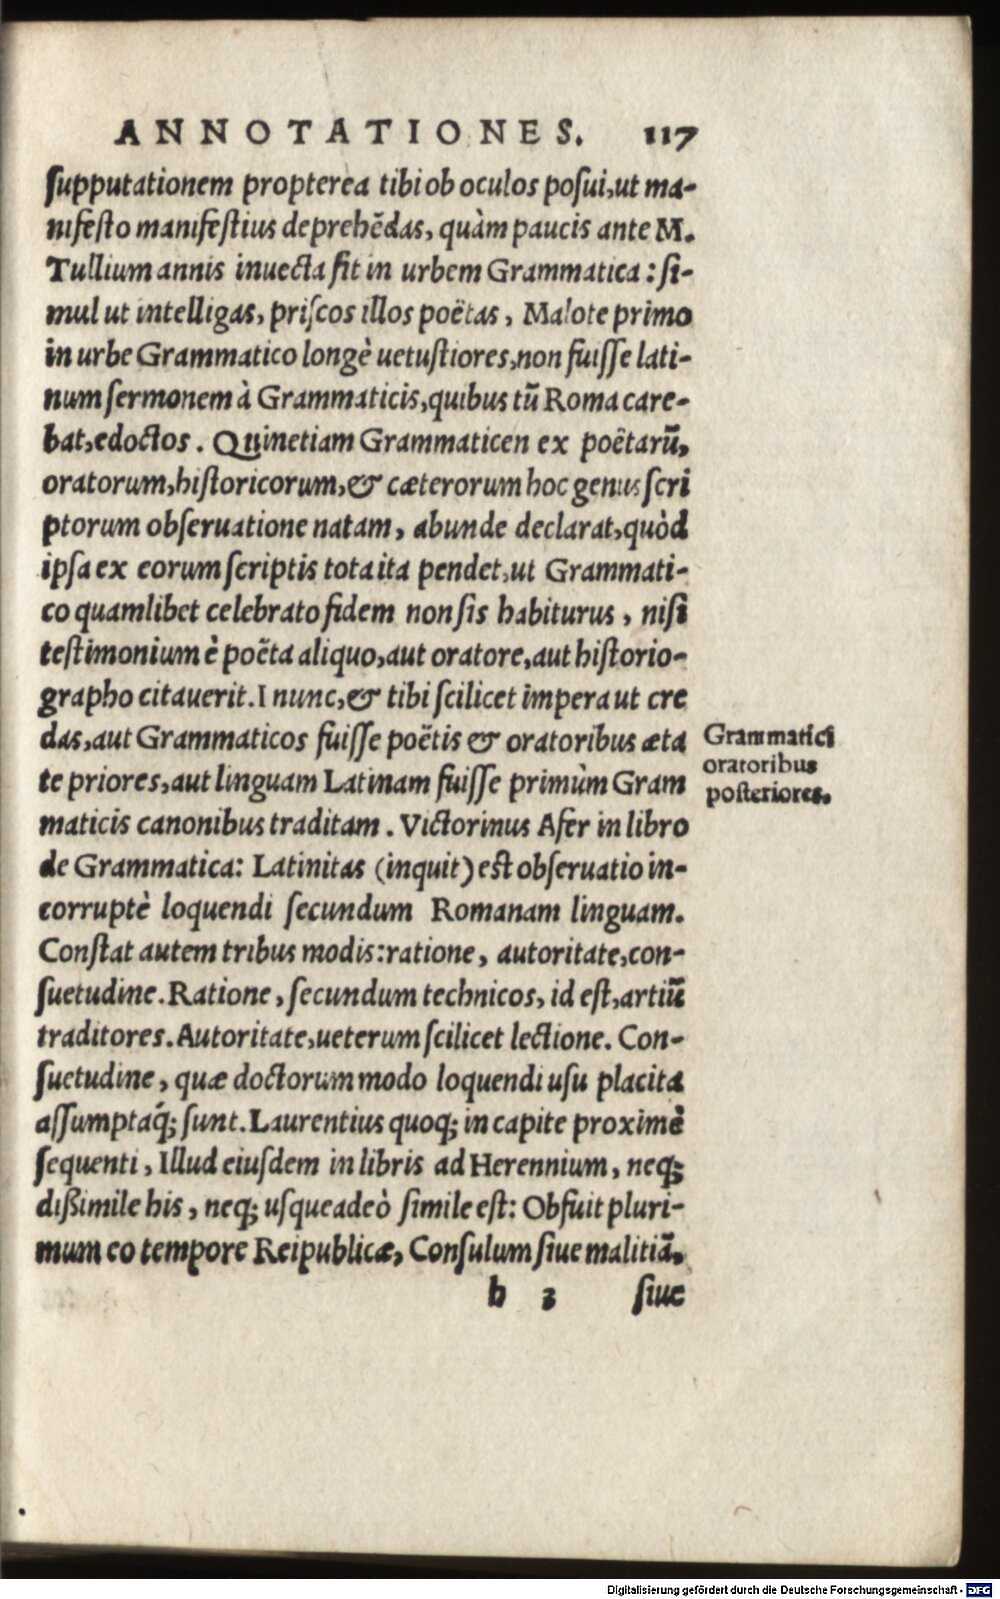 ANNOTATIONES. 117
ſupputationem propterea tibi ob oculos poſui, ut ma-
nifeſto manifeſtius deprehẽdas, quàm paucis ante M.
Tullium annis inuecta ſit in urbem Grammatica: ſi-
mul ut intelligas, priſcos illos poëtas, Malote primo
in urbe Grammatico longè uetuſtiores, non fuiſſe lati-
num ſermonem à Grammaticis, quibus tũ Roma care-
bat, edoctos. Quinetiam Grammaticen ex poëtarũ,
oratorum, hiſtoricorum, & cæterorum hoc genus ſcri
ptorum obſeruatione natam, abunde declarat, quòd
ipſa ex eorum ſcriptis tota ita pendet, ut Grammati-
co quamlibet celebrato fidem non ſis habiturus, niſi
teſtimonium è poëta aliquo, aut oratore, aut hiſtorio-
grapho citauerit. I nunc, & tibi ſcilicet impera ut cre
das, aut Grammaticos fuiſſe poëtis & oratoribus æta
te priores, aut linguam Latinam fuiſſe primùm Gram
maticis canonibus traditam. Victorinus Afer in libro
de Grammatica: Latinitas (inquit) eſt obſeruatio in-
corruptè loquendi ſecundum Romanam linguam.
Conſtat autem tribus modis: ratione, autoritate, con-
ſuetudine. Ratione, ſecundum technicos, id eſt, artiũ
traditores. Autoritate, ueterum ſcilicet lectione. Con-
ſuetudine, quæ doctorum modo loquendi uſu placita
aſſumptaq́; ſunt. Laurentius quoq; in capite proximè
ſequenti, Illud eiuſdem in libris ad Herennium, neq;
dißimile his, neq; uſqueadeò ſimile eſt: Obfuit pluri-
mum eo tempore Reipublicæ, Conſulum ſiue malitiã,
b 3 ſiue
Grammatici
oratoribus
poſteriores.
Digitalisierung gefördert durch die Deutsche Forschungsgemeinschaft - DFG